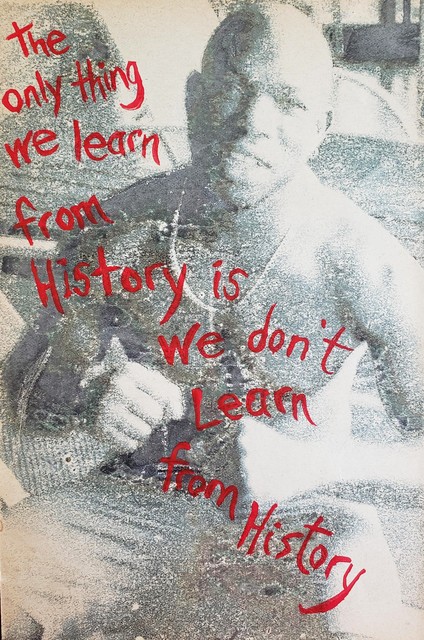 the
only thing
we learn
from
History is
we don't
Learn
from
History